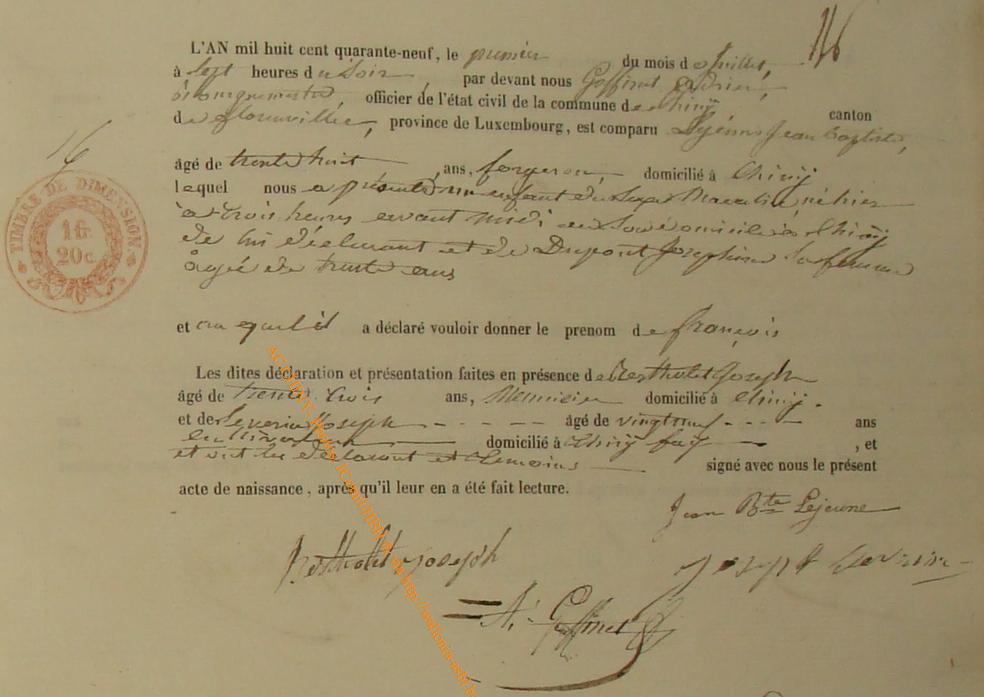 L'AN mil huit cent quarante-neuf, le premier du mois de Juillet,
à sept heures du Soir, par devant nous Goffinet Adrien,
Bourguemestre, officier de l'état civil de la commune de Chiny
canton
de florenville, province de Luxembourg, est comparu Lejeune Jean Baptiste,
âgé de trente huit ans, forgeron, domicilié à Chiny
lequel nous a présenté un enfant du Sexe Masculin, né hier
à trois heures avant midi en Son domicile à Chiny
de lui déclarant et de Dupont Josephine Sa femme
âgée de trente ans
et au quel il a déclaré vouloir donner le prenom de françois
Les dites déclaration et présentation faites en présence de Bertholet Joseph
âgé de trente trois ans, Menuisier domicilié à Chiny.
et de Joseph âgé de vingt neuf ans
Cultivateur domicilié à Chiny, et
et ont les déclarant et témoins signé avec nous le présent
acte de naissance, après qu'il leur en a été fait lecture.
Jean Bte Lejeune
Bertholet Joseph
Joseph
A. Goffinet
TIMBLE DE DIMENSION
20 c.